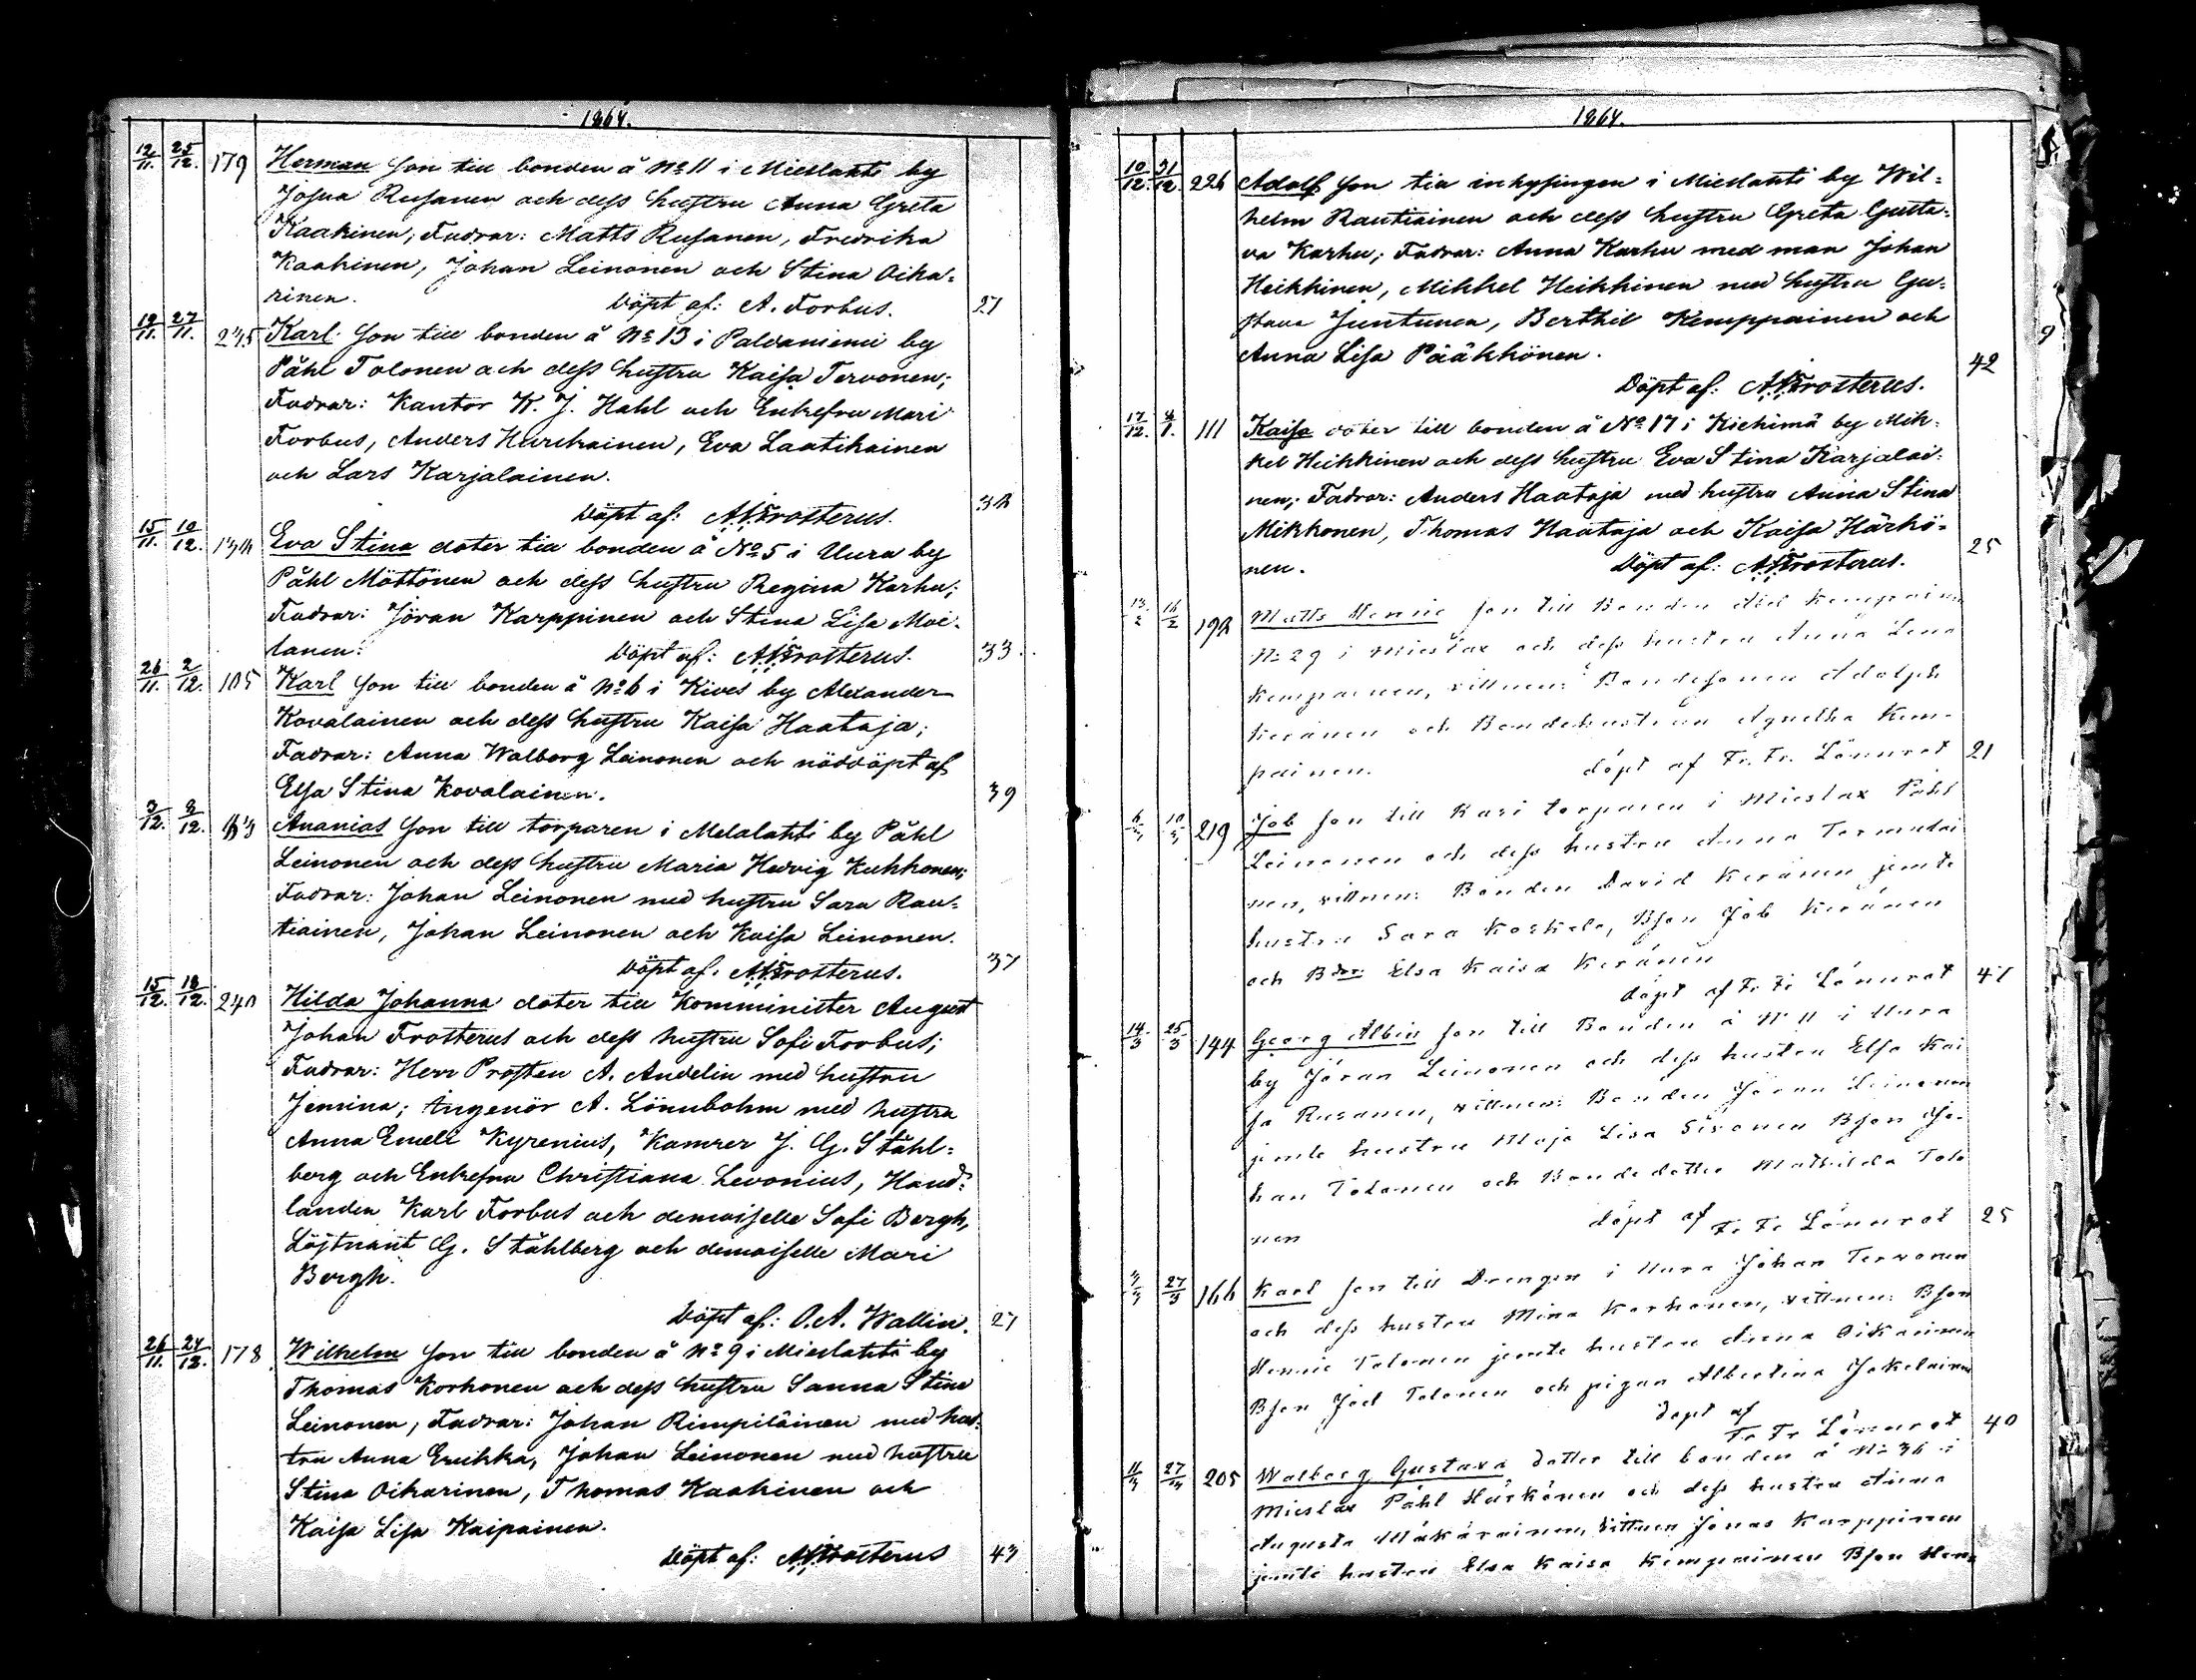 1864.
12/11. 25/12. 179 Herman Son till bonden å No 11 i Mieslahti by
Josua Rusanen och dess hustru Anna Greta
Kaakinen; Fadrar: Matts Rusanen, Fredrika
Kaakinen, Johan Leinonen och Stina Oika-
rinen. Döpt af: A. Forbus. 27
19/11. 27/11. 235 Karl Son till bonden å No 13 i Paldaniemi by
Påhl Tolonen och dess hustru Kaisa Tervonen;
Fadrar: Kantor K. J. Hahl och Enkefru Mari
Forbus, Anders Hurskainen, Eva Laatikainen
och Lars Karjalainen.
Döpt af: A.J. Frosterus. 32
15/11. 10/12. 134 Eva Stina doter till bonden å No 5 i Uura by
Påhl Möttönen och dess hustru Regina Karhu;
Fadrar: Jöran Karppinen och Stina Lisa Moi-
lanen. Döpt af: A.J. Frosterus. 33
26/11. 2/12. 105 Karl Son till bonden å No 6 i Kives by Alexander
Kovalainen och dess hustru Kaisa Haataja;
Fadrar: Anna Walborg Leinonen och nöddöpt af
Elsa Stina Kovalainen. 39
3/12. 8/12. Ananias Son till torparen i Melalahti by Påhl
Leinonen och dess hustru Maria Hedvig Kuhkonen;
Fadrar: Johan Leinonen med hustru Sara Rau-
tiainen, Johan Leinonen och Kaisa Leinonen.
Döpt af. A.J. Frosterus. 37
15/12. 18/12. 240 Hilda Johanna doter till Komminister August
Johan Frosterus och dess hustru Sofi Forbus;
Fadrar: Herr Prosten A. Andelin med hustru
Jemina; Ingenör A. Lönnbohm med hustru
Anna Emeli Kyrenius, Kamrer J. G. Ståhl-
berg och Enkefru Christiana Levonius, Hand-
landen Karl Forbus och demoiselle Sofi Bergh,
Löjtnant G. Ståhlberg och demoiselle Mari
Bergh.
Döpt af: O. A. Wallin. 27
26/11. 24/12. 178 Wilhelm Son till bonden å No 9 i Mieslahti by
Thomas Korhonen och dess hustru Sanna Stina
Leinonen, Fadrar: Johan Rimpiläinen med hus-
tru Anna Erickka, Johan Leinonen med hustru
Stina Oikarinen, Thomas Kaakinen och
Kaisa Lisa Kaipainen.
Döpt af: A.J. Frosterus 43
1864.
10/12. 31/12. 226 Adolf Son till inhysingen i Mieslahti by Wil-
helm Rautiainen och dess hustru Greta Gusta-
va Karhu; Fadrar: Anna Karhu med man Johan
Heikkinen, Mikkel Heikkinen med hustru Gu-
stava Juntunen, Berthil Kemppainen och
Anna Lisa Pääkkönen. 42
Döpt af: A.J. Frosterus.
17/12. 8/1. 111 Kaisa doter till bonden å No 17 i Kiehimä by Mik-
kel Heikkinen och dess hustru Eva Stina Karjalai-
nen; Fadrar: Anders Haataja med hustru Anna Stina
Mikkonen, Thomas Haataja och Kaisa Härkö-
nen. Döpt af: A.J. Frosterus. 25
13/2 16/2 192 Matts Hennic Son till Bonden Abel Kempainen
No 29 i Mieslax och dess hustru Anna Lena
Kempainen, vittnen: Bondesonen Adolph
Keränen och Bondehustrun Agnetha Kem-
painen. döpt af Fr. Fr. Lönnrot 21
219 Job Son till Kari torparen i Mieslax Påhl
Leinonen och dess hustru Anna Tormulai
nen, vittnen: Bonden David Keränen jemte
hustru Sara Koskelo, Bson Job Keränen
och Bdr: Elsa Kaisa Keränen
döpt af Fr Fr Lönnrot 41
14/3 25/3 144 Georg Albin Son till Bonden å No 11 i Uura
by Jöran Leinonen och dess hustru Elsa Kai
sa Rusanen, vittnen: Bonden Jöran Leinonen
jemte hustru Maja Lisa Sisonen Bson Jo-
han Tolonen och Bondedotter Mathilda Tolo
nen döpt af Fr. Fr Lönnrot 25
27/3 166 Karl Son till Drengen i Uura Johan Tervonen
och dess hustru Mina Korhonen, vittnen: Bson
Hennic Tolonen jemte hustru Anna Oikarinen
Bson Joel Tolonen och pigan Albertina Jokelainen
döpt af
Fr Fr Lönnrot 40
205 Walborg Gustava dotter till bonden å No 36 i
Mieslax Påhl Härkönen och dess hustru Anna
Augusta Mäkäräinen, Vittnen Jonas Karppinen
jemte hustru Elsa Kaisa Kempainen Bson Hen-